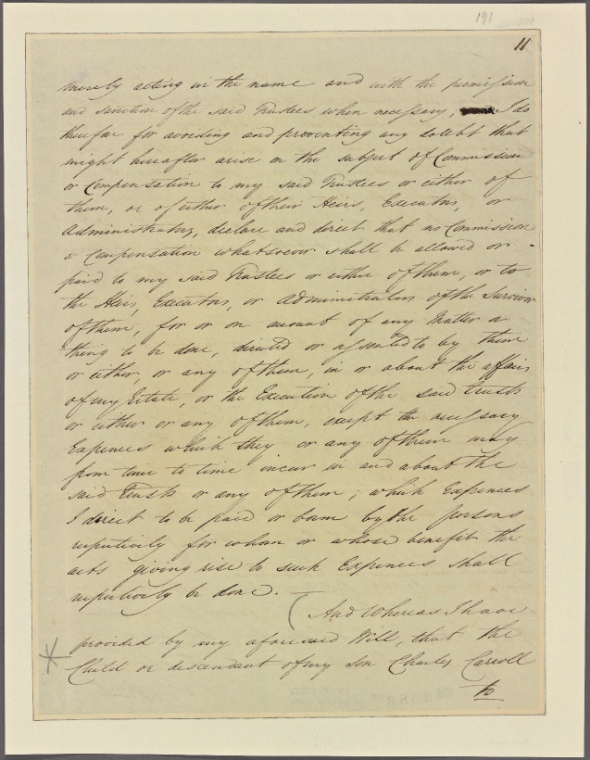 191
11
merely acting in the name and with the permission
and sanction of the said Trustees when necessary, I do
therefor for avoiding and preventing any doubt that
might hereafter arise on the subject of Commission
or Compensation to my said Trustees or either of
them, or of either of their Heirs, Executors, or
Administrators, declare and direct that no Commission
or Compensation whatsoever shall be allowed or
paid to my said Trustees or either of them, or to
the Heirs, Executors, or Administrators of the Survivor
of them, for or on account of any Matter or
thing to be done, directed or assented to by them
or either, or any of them, in or about the affairs
of my Estate, or the Execution of the said Trusts
or either or any of them, except the necessary
Expences which they or any of them may
from time to time incur in and about the
said Trusts or any of them; which Expences
I direct to be paid or borne by the persons
respectively for whom or whose benefit the
acts giving rise to such Expences shall
respectively be done. —
(And Whereas I have
provided by my aforesaid Will, that the
Child or descendant of my son Charles Carroll
to